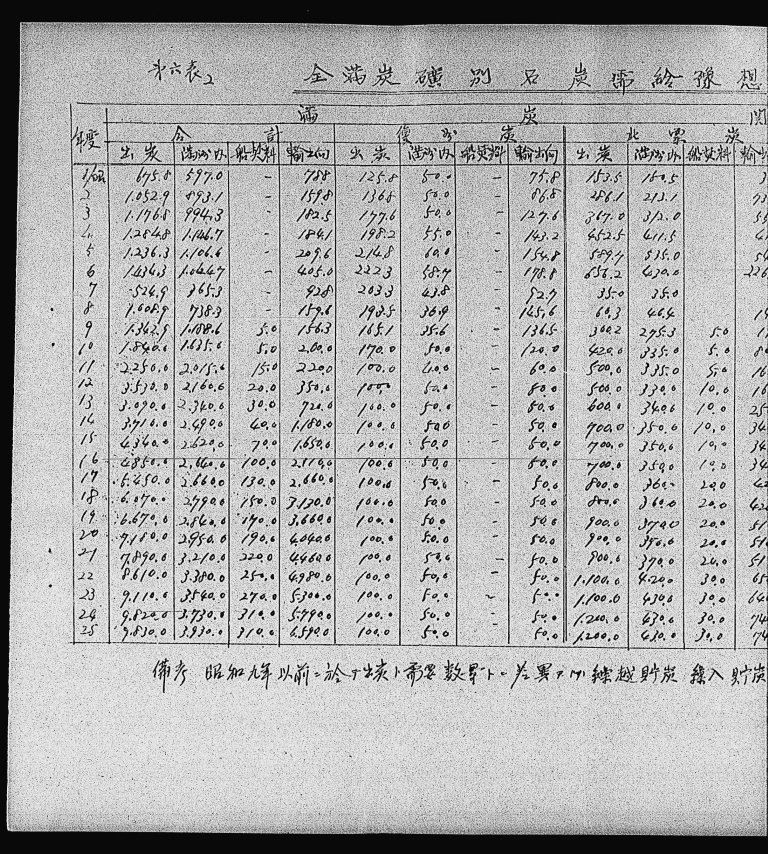 第六表2 全満炭礦別石炭需給豫想
満炭
年度 合計 復州炭 北票炭
出炭 満州内 船焚料 輸出向 出炭 満州内 船焚料 輸出向 出炭 満州内 船焚料
675.8 597.0 - 78.8 125.8 50.0 - 75.8 153.5 150.5
2 1.052.9 893.1 - 159.8 136.8 50.0 - 86.8 286.1 213.1
3 1.176.8 994.3 - 182.5 177.6 50.0 - 127.6 367.0 312.0
4 1.284.8 1.146.7 - 184.1 198.2 55.0 - 143.2 452.5 411.5
5 1.236.3 1.106.6 - 209.6 214.8 60.0 - 154.8 589.7 535.0
6 1.434.3 1.044.7 - 405.0 222.3 58.7 - 178.8 656.2 430.0
7 524.9 365.3 - 92.8 203.3 43.8 - 92.7 35.0 35.0
8 1.008.9 738.3 - 159.6 193.5 36.9 - 145.6 60.3 46.4
9 1.342.9 1.188.6 5.0 156.3 165.1 35.6 - 136.5 300.2 275.3 5.0
10 1.840.0 1.635.0 5.0 200.0 170.0 50.0 - 120.0 420.0 335.0 5.0
11 2.250.0 2.015.0 15.0 220.0 100.0 40.0 - 60.0 500.0 335.0 5.0
12 2.530.0 2.160.0 20.0 350.0 100.0 50.0 - 50.0 500.0 330.0 10.0
13 3.090.0 2.340.0 30.0 720.0 100.0 50.0 - 50.0 600.0 340.0 10.0
14 3.710.0 2.490.0 40.0 1.180.0 100.0 50.0 - 50.0 700.0 350.0 10.0
15 4.340.0 2.620.0 70.0 1.650.0 100.0 50.0 - 50.0 700.0 350.0 10.0
16 4.850.0 2.640.0 100.0 2.110.0 100.0 50.0 - 50.0 700.0 350.0 10.0
17 5.450.0 2.660.0 130.0 2.660.0 100.0 50.0 - 50.0 800.0 360.0 20.0
18 6.070.0 2.790.0 150.0 3.130.0 100.0 50.0 - 50.0 800.0 360.0 20.0
19 6.670.0 2.840.0 170.0 3.660.0 100.0 50.0 - 50.0 900.0 370.0 20.0
20 7.180.0 2.950.0 190.0 4.040.0 100.0 50.0 - 50.0 900.0 350.0 20.0
21 7.890.0 3.210.0 220.0 4.460.0 100.0 50.0 - 50.0 900.0 370.0 20.0
22 8.610.0 3.380.0 250.0 4.980.0 100.0 50.0 - 50.0 1.100.0 420.0 30.0
23 9.110.0 3.540.0 270.0 5.300.0 100.0 50.0 - 50.0 1.100.0 430.0 30.0
24 9.820.0 3.730.0 310.0 5.790.0 100.0 50.0 - 50.0 1.200.0 430.0 30.0
25 9.830.0 3.930.0 310.0 6.590.0 100.0 50.0 50.0 1.200.0 430.0 30.0
備考 昭和九年以前ニ於テ出炭ト需要数累ト 差異アルハ繰越貯炭 繰入 貯炭